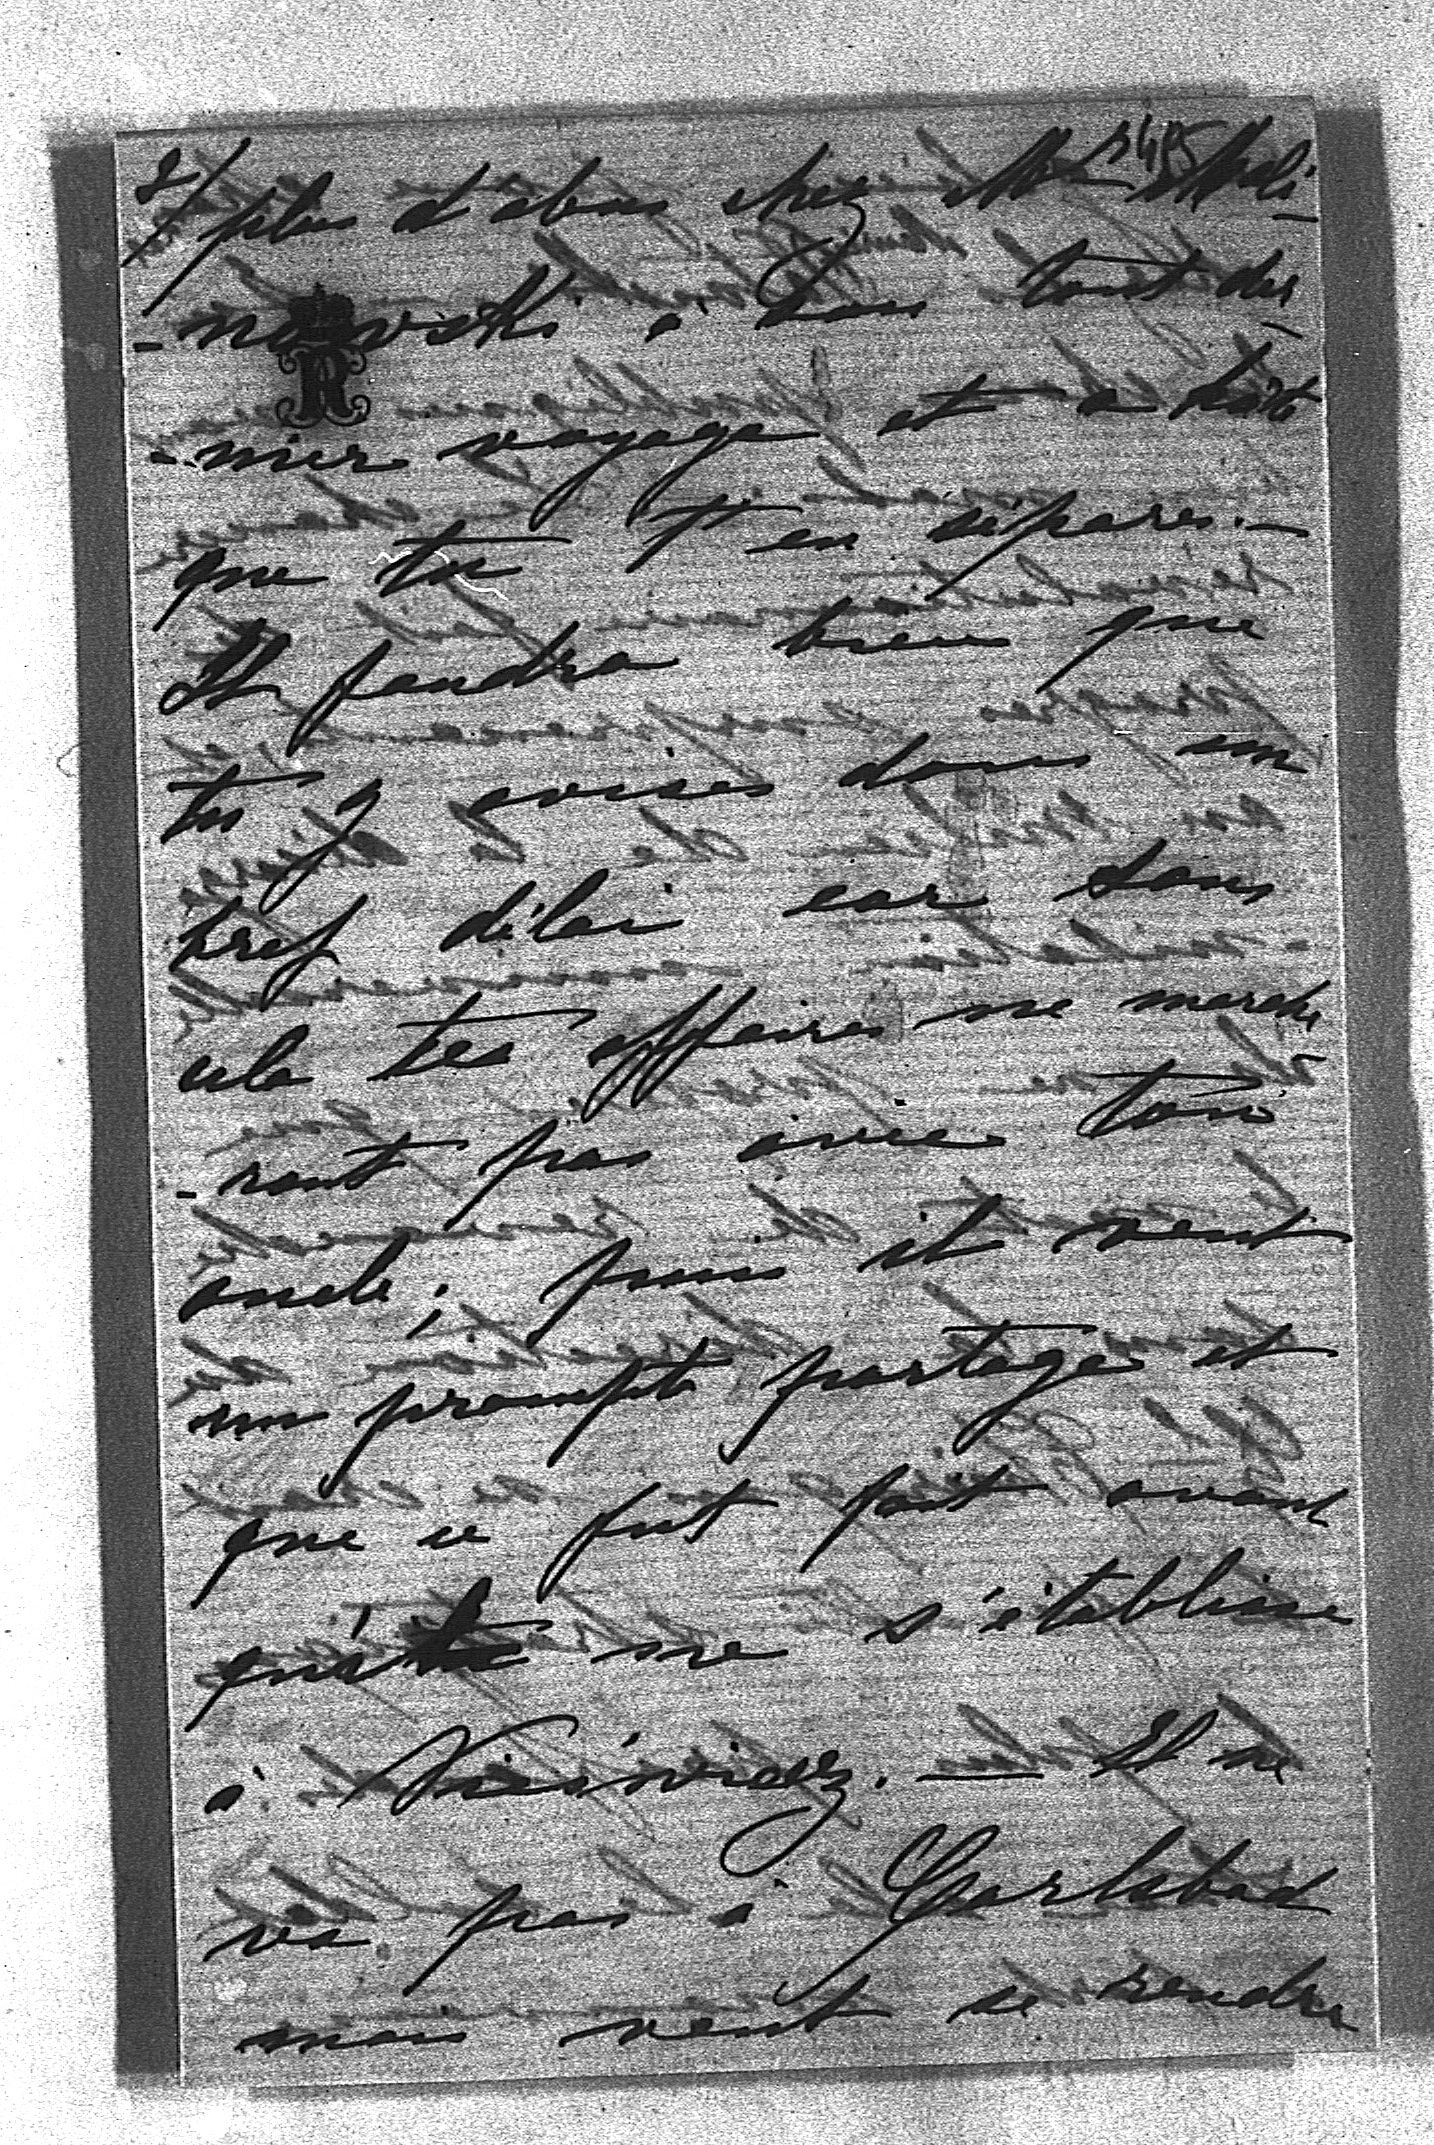 2/ plus d'abus chez Mr Mali-
-nowski à ton tout der
-nier voyage et a hâte
que tu t'en sépares.-
Il faudra bien que
tu y avises dans un
bref délai car sans
cela tes affaires ne marche
-ront pas avec ton
oncle; puis il veut
un prompt partage et
que ce fut fait avant
qu'il ne s'établisse
à Nieśwież. — Il ne
va pas à Carlsbad
mais veut se rendre